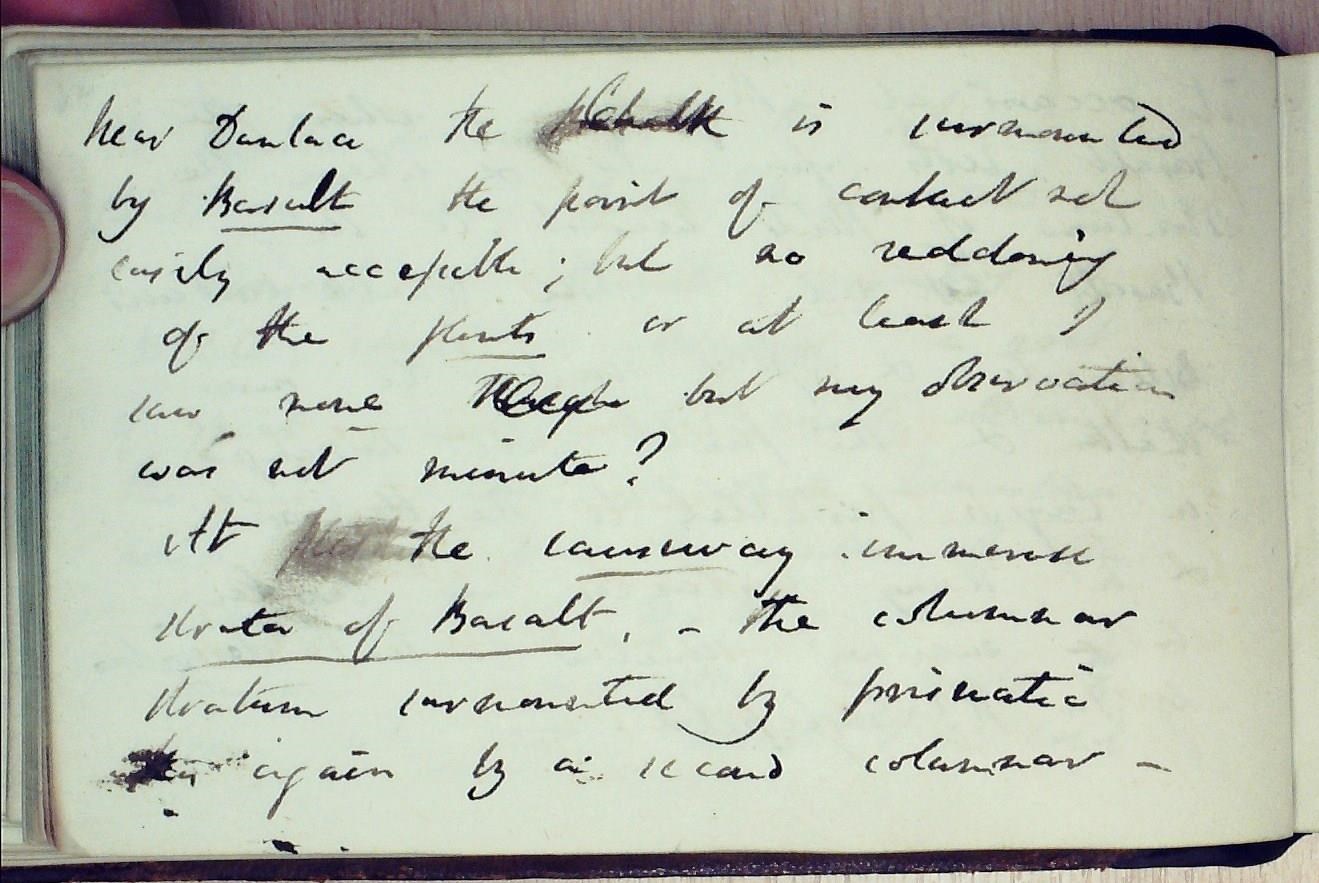 Near Dunluce the Chalk is surmounted
by Basalt the point of contact not
easily accessible; but no reddening
of the flints or at least I
saw none but my observation
was not minute?
At the causeway immense
strata of Basalt, - the columnar
stratum surmounted by prismatic
again by a second columnar -